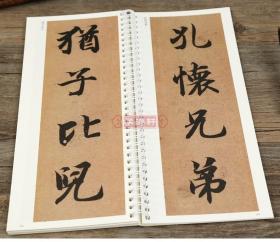 孔懷兄弟
猶子比兒